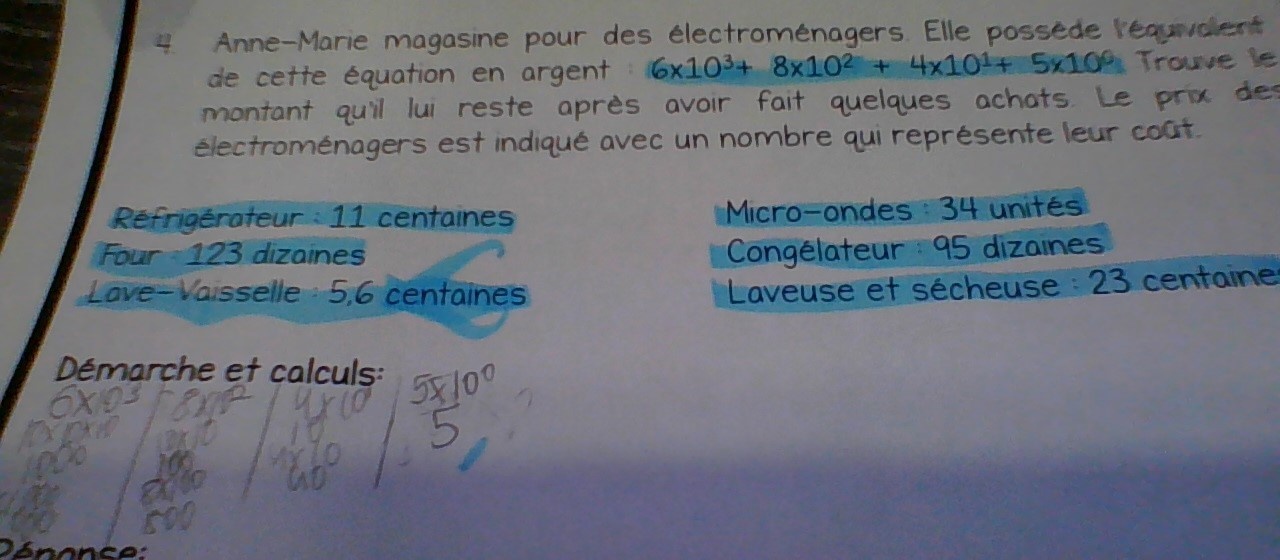 4. Anne-Marie magasine pour des électroménagers. Elle possède l'équivalent
de cette équation en argent : 6x10³+ 8x10² + 4x10¹+ 5x10⁰. Trouve le
montant qu'il lui reste après avoir fait quelques achats. Le prix des
électroménagers est indiqué avec un nombre qui représente leur coût.
Réfrigérateur : 11 centaines
Four : 123 dizaines
Lave-Vaisselle : 5,6 centaines
Micro-ondes : 34 unités
Congélateur : 95 dizaines
Laveuse et sécheuse : 23 centaine
Démarche et calculs:
6x10³ 8x10² 4x10 5x10⁰
10x10x10 10 5
1000 100 4x10
40
800
Réponse: